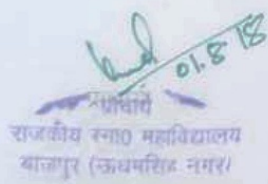 01.8.18
प्राचार्य
राजकीय स्ना0 महाविद्यालय
बाजपुर (ऊधमसिंह नगर)